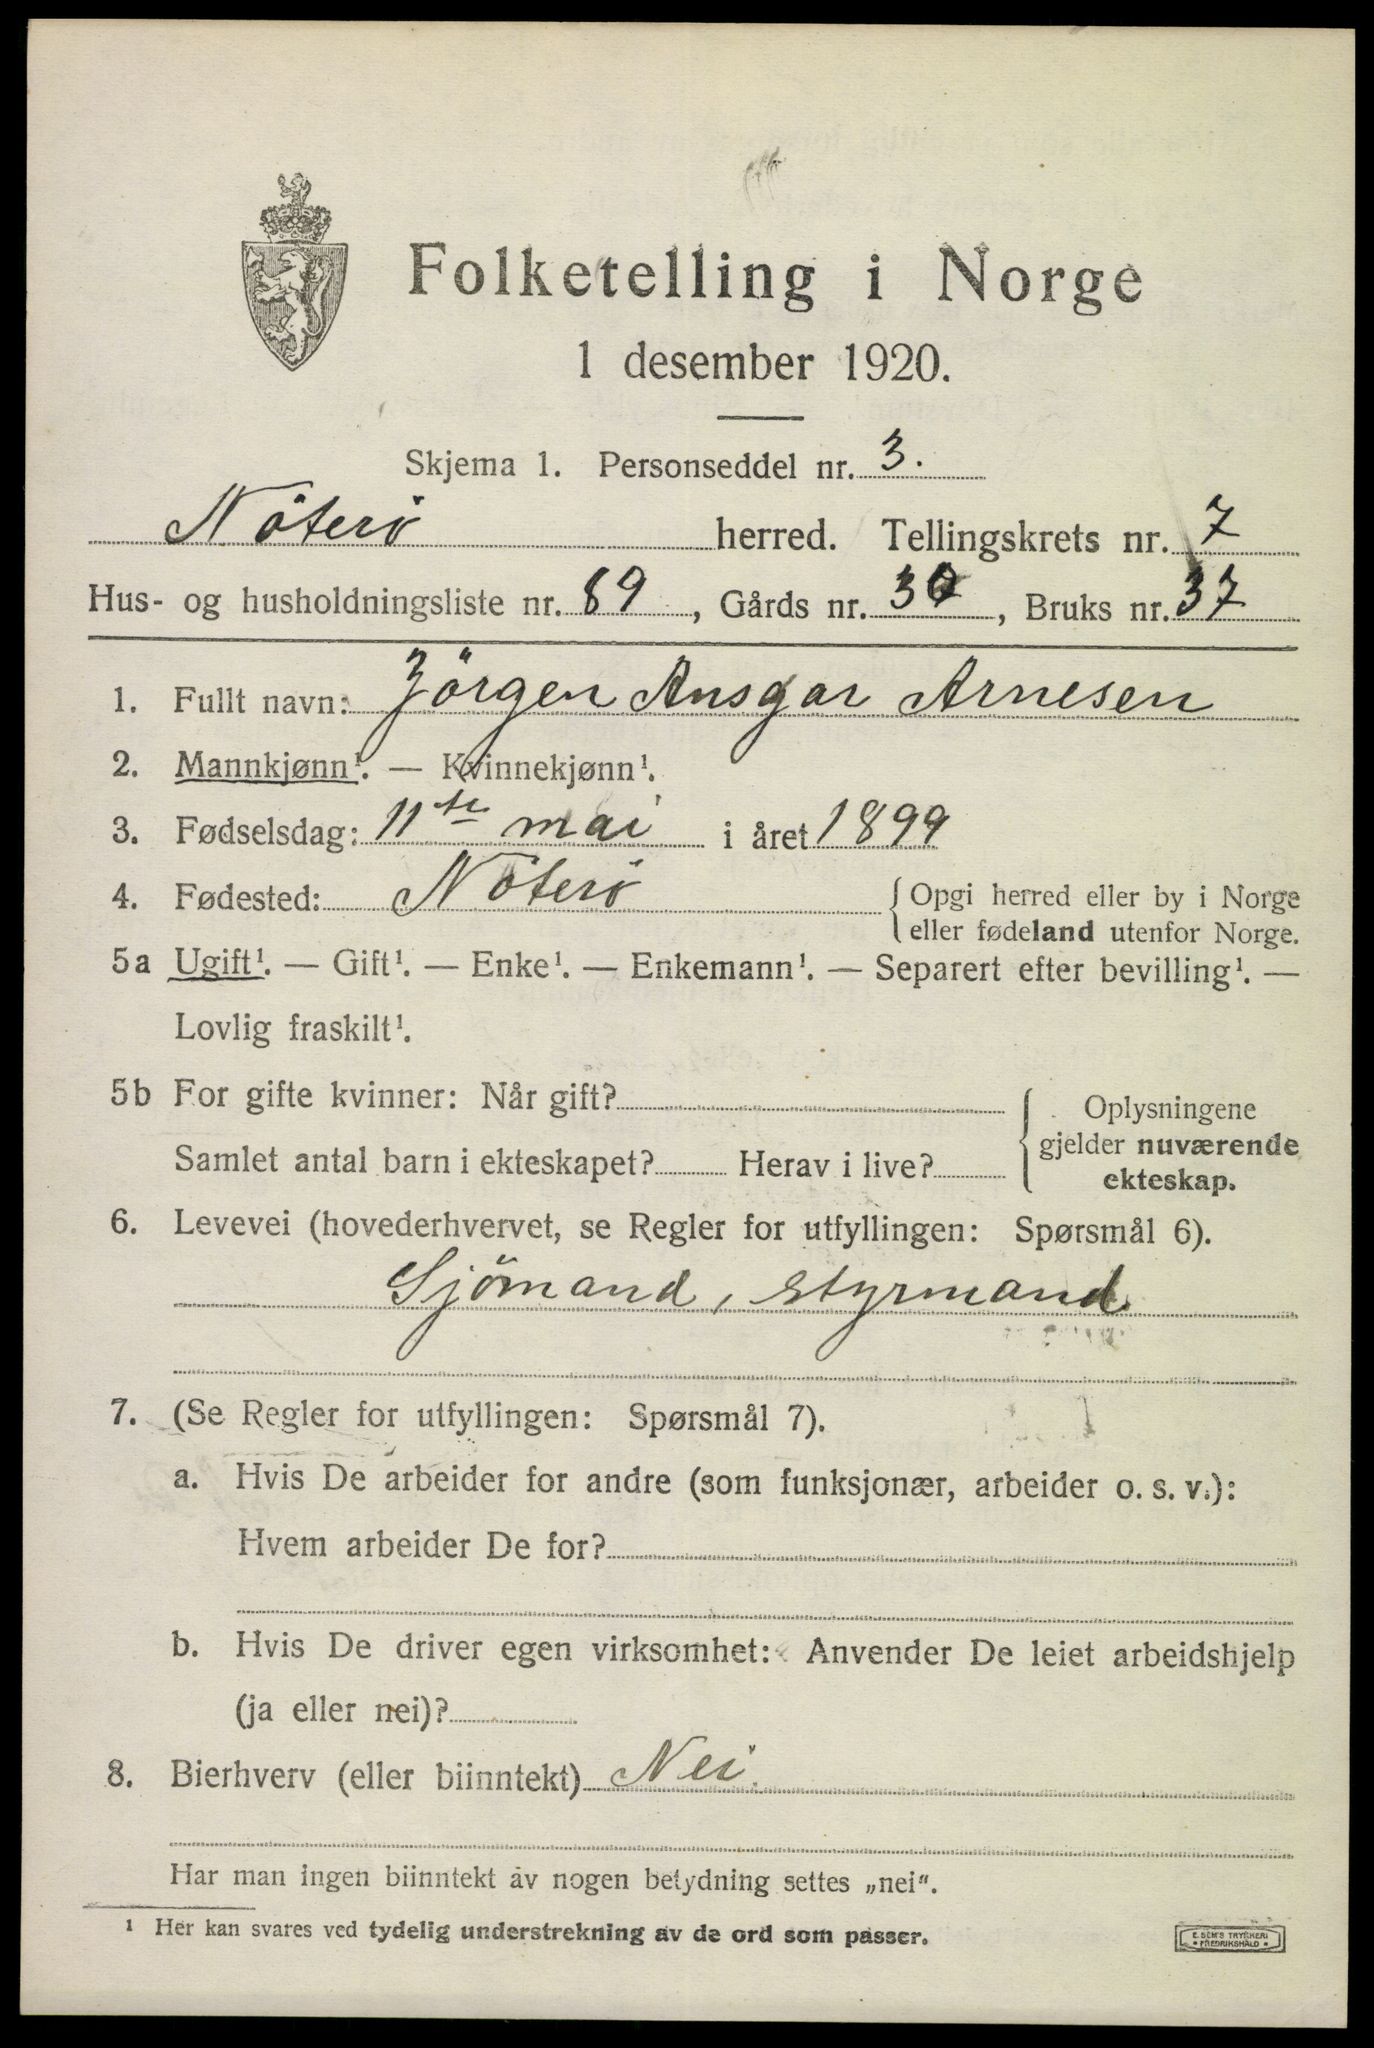 Folketelling i Norge
1 desember 1920.
Skjema 1. Personseddel nr. 3.
Nöterö herred. Tellingskrets nr. 7
Hus- og husholdningsliste nr. 89, Gårds nr. 30, Bruks nr. 37
1. Fullt navn: Jörgen Ansgar Arnesen
2. Mannkjønn¹. — Kvinnekjønn¹.
3. Fødselsdag: 11te mai i året 1899
4. Fødested: Nöterö { Opgi herred eller by i Norge
eller fødeland utenfor Norge.
5a Ugift¹. — Gift¹. — Enke¹. — Enkemann¹. — Separert efter bevilling¹. —
Lovlig fraskilt¹.
5b For gifte kvinner: Når gift?
Samlet antal barn i ekteskapet? Herav i live?
{ Oplysningene
gjelder nuværende
ekteskap.
6. Levevei (hovederhvervet, se Regler for utfyllingen: Spørsmål 6).
Sjömand, styrmand
7. (Se Regler for utfyllingen: Spørsmål 7).
a. Hvis De arbeider for andre (som funksjonær, arbeider o. s. v.):
Hvem arbeider De for?
b. Hvis De driver egen virksomhet: Anvender De leiet arbeidshjelp
(ja eller nei)?
8. Bierhverv (eller biinntekt) Nei.
Har man ingen biinntekt av nogen betydning settes „nei".
¹ Her kan svares ved tydelig understrekning av de ord som passer.
E. SEM'S TRYKKERI
• FREDRIKSHALD •